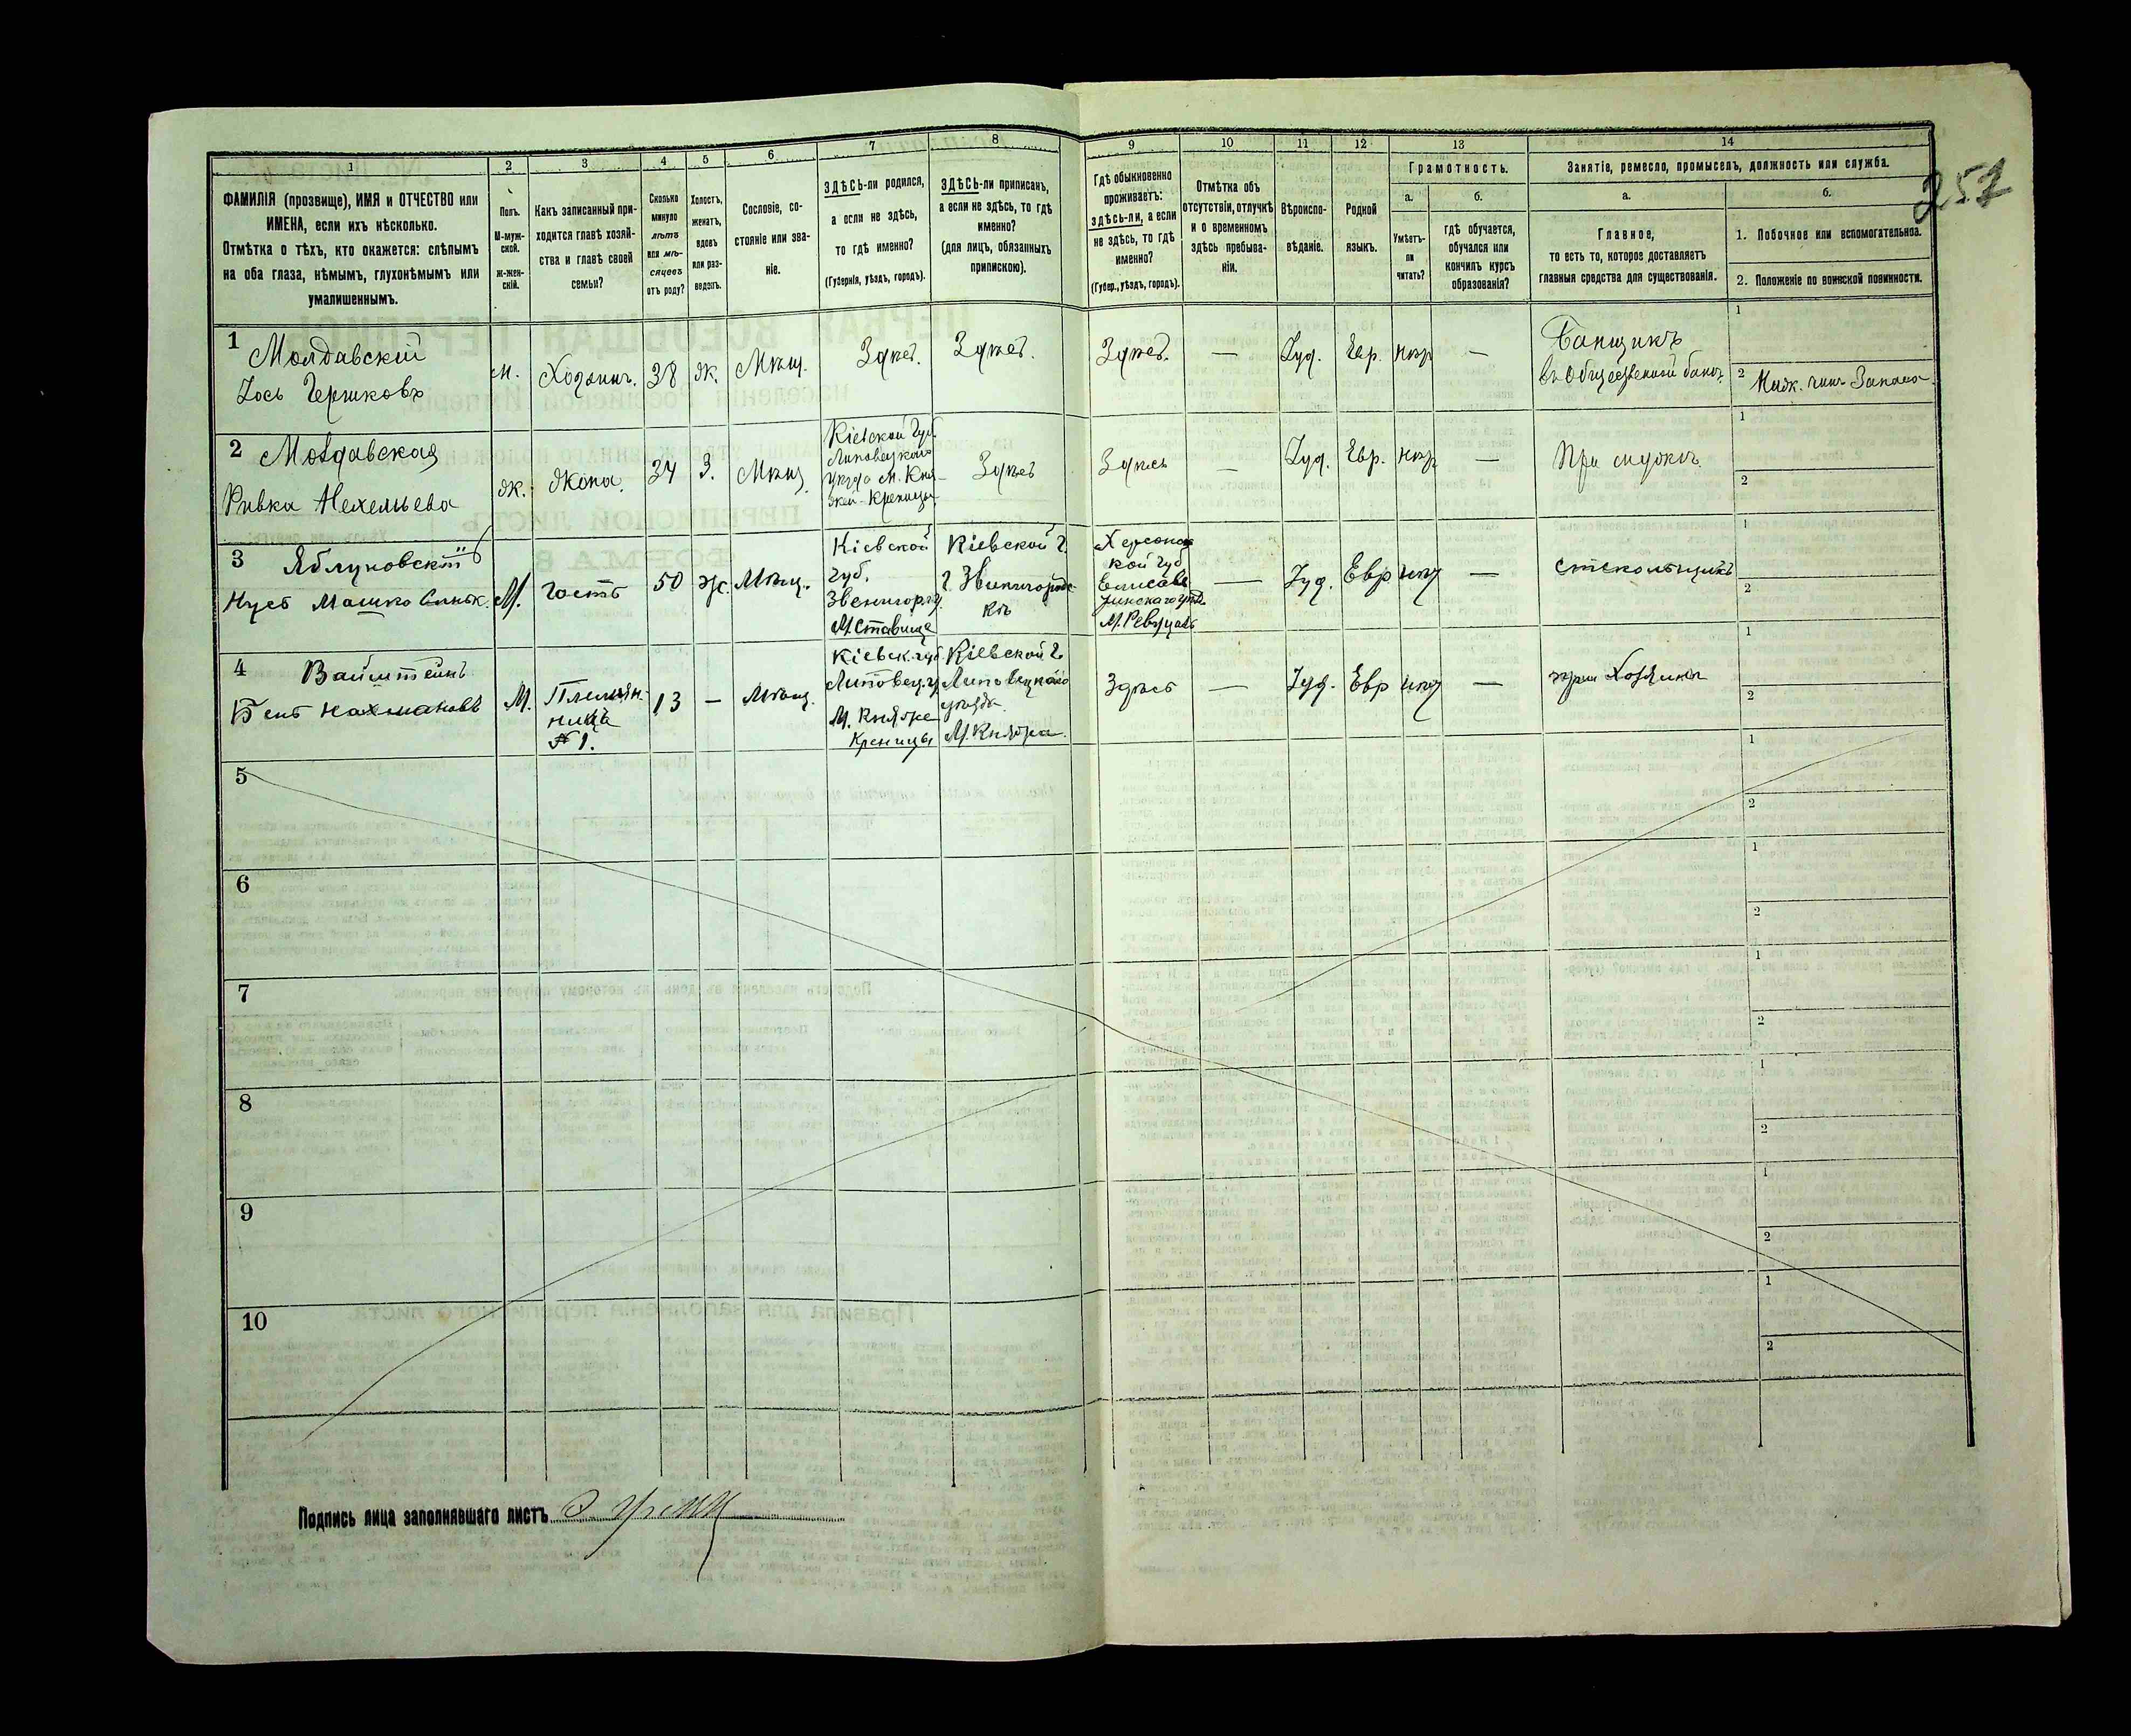 1 2 3 4 5 6 7 8 9 10 11 12 13 14
ФАМИЛІЯ (прозвище), ИМЯ и ОТЧЕСТВО или
ИМЕНА, если ихъ нѣсколько.
Отмѣтка о тѣхъ, кто окажется: слѣпымъ
на оба глаза, нѣмымъ, глухонѣмымъ или
умалишеннымъ.
Полъ.
М-муж-
ской.
ж-жен-
скій.
Какъ записанный при-
ходится главѣ хозяй-
ства и главѣ своей
семьи?
Сколько
минуло
лѣтъ
или мѣ-
сяцевъ
отъ роду?
Холостъ,
женатъ,
вдовъ
или раз-
веденъ.
Сословіе, со-
стояніе или зва-
ніе.
ЗДѢСЬ-ли родился,
а если не здѣсь,
то гдѣ именно?
(Губернія, уѣздъ, городъ).
ЗДѢСЬ-ли приписанъ,
а если не здѣсь, то гдѣ
именно?
(для лицъ, обязанныхъ
припискою).
Гдѣ обыкновенно
проживаетъ:
здѣсь-ли, а если
не здѣсь, то гдѣ
именно?
(Губер., уѣздъ, городъ).
Отмѣтка объ
отсутствіи, отлучкѣ
и о временномъ
здѣсь пребыва-
ніи.
Вѣроиспо-
вѣданіе.
Родной
языкъ.
Грамотность.
а.
Умѣетъ-
ли
читать?
б.
гдѣ обучается,
обучался или
кончилъ курсъ
образованія?
Занятіе, ремесло, промыселъ, должность или служба.
а.
Главное,
то есть то, которое доставляетъ
главныя средства для существованія.
б.
1. Побочное или вспомогательное.
2. Положеніе по воинской повинности.
257
1
Молдавскій
Іось Гершковъ
м.
Хозяинъ.
38
ж.
Мѣщ.
Здѣсь.
Здѣсь.
Здѣсь.
—
Іуд.
Евр.
нѣт
—
Банщикъ
въ Общественной банѣ
1
2 Ниж. чинъ Запаса.
2
Молдавская
Ривка Нехельева
ж.
Жена.
34
З.
Мѣщ.
Кіевской Губ.
Липовецкого
уѣзда м. Кня-
жей-Креницы
Здѣсь
Здѣсь
—
Іуд.
Евр.
нѣт
—
При мужѣ.
1
2
3
Яблуновскій
Нусь Машко
М.
Гость
50
ж.
Мѣщ.
Кіевской
Губ.
Звенигор. у.
М. Ставище
Кіевской Г.
г. Звенигородк
кѣ
Херсонс
кой Губ
Елисаве
М.
—
Іуд.
Евр
нѣт
—
Стекольщикъ
1
2
4
Вайнштейнъ
Бень Нахмановъ
М.
Племян-
ницъ
№ 1.
13
—
Мѣщ.
Кіевск. губ.
Липовец. у
М. Княже
Креницы
Кіевской Г.
Липовецкого
уѣзда.
М. Княжа.
Здѣсь
—
Іуд.
Евр
нѣт
—
при Хозяинѣ
1
2
5
1
2
6
1
2
7
1
2
8
1
2
9
1
2
10
1
2
Подпись лица заполнявшаго листъ